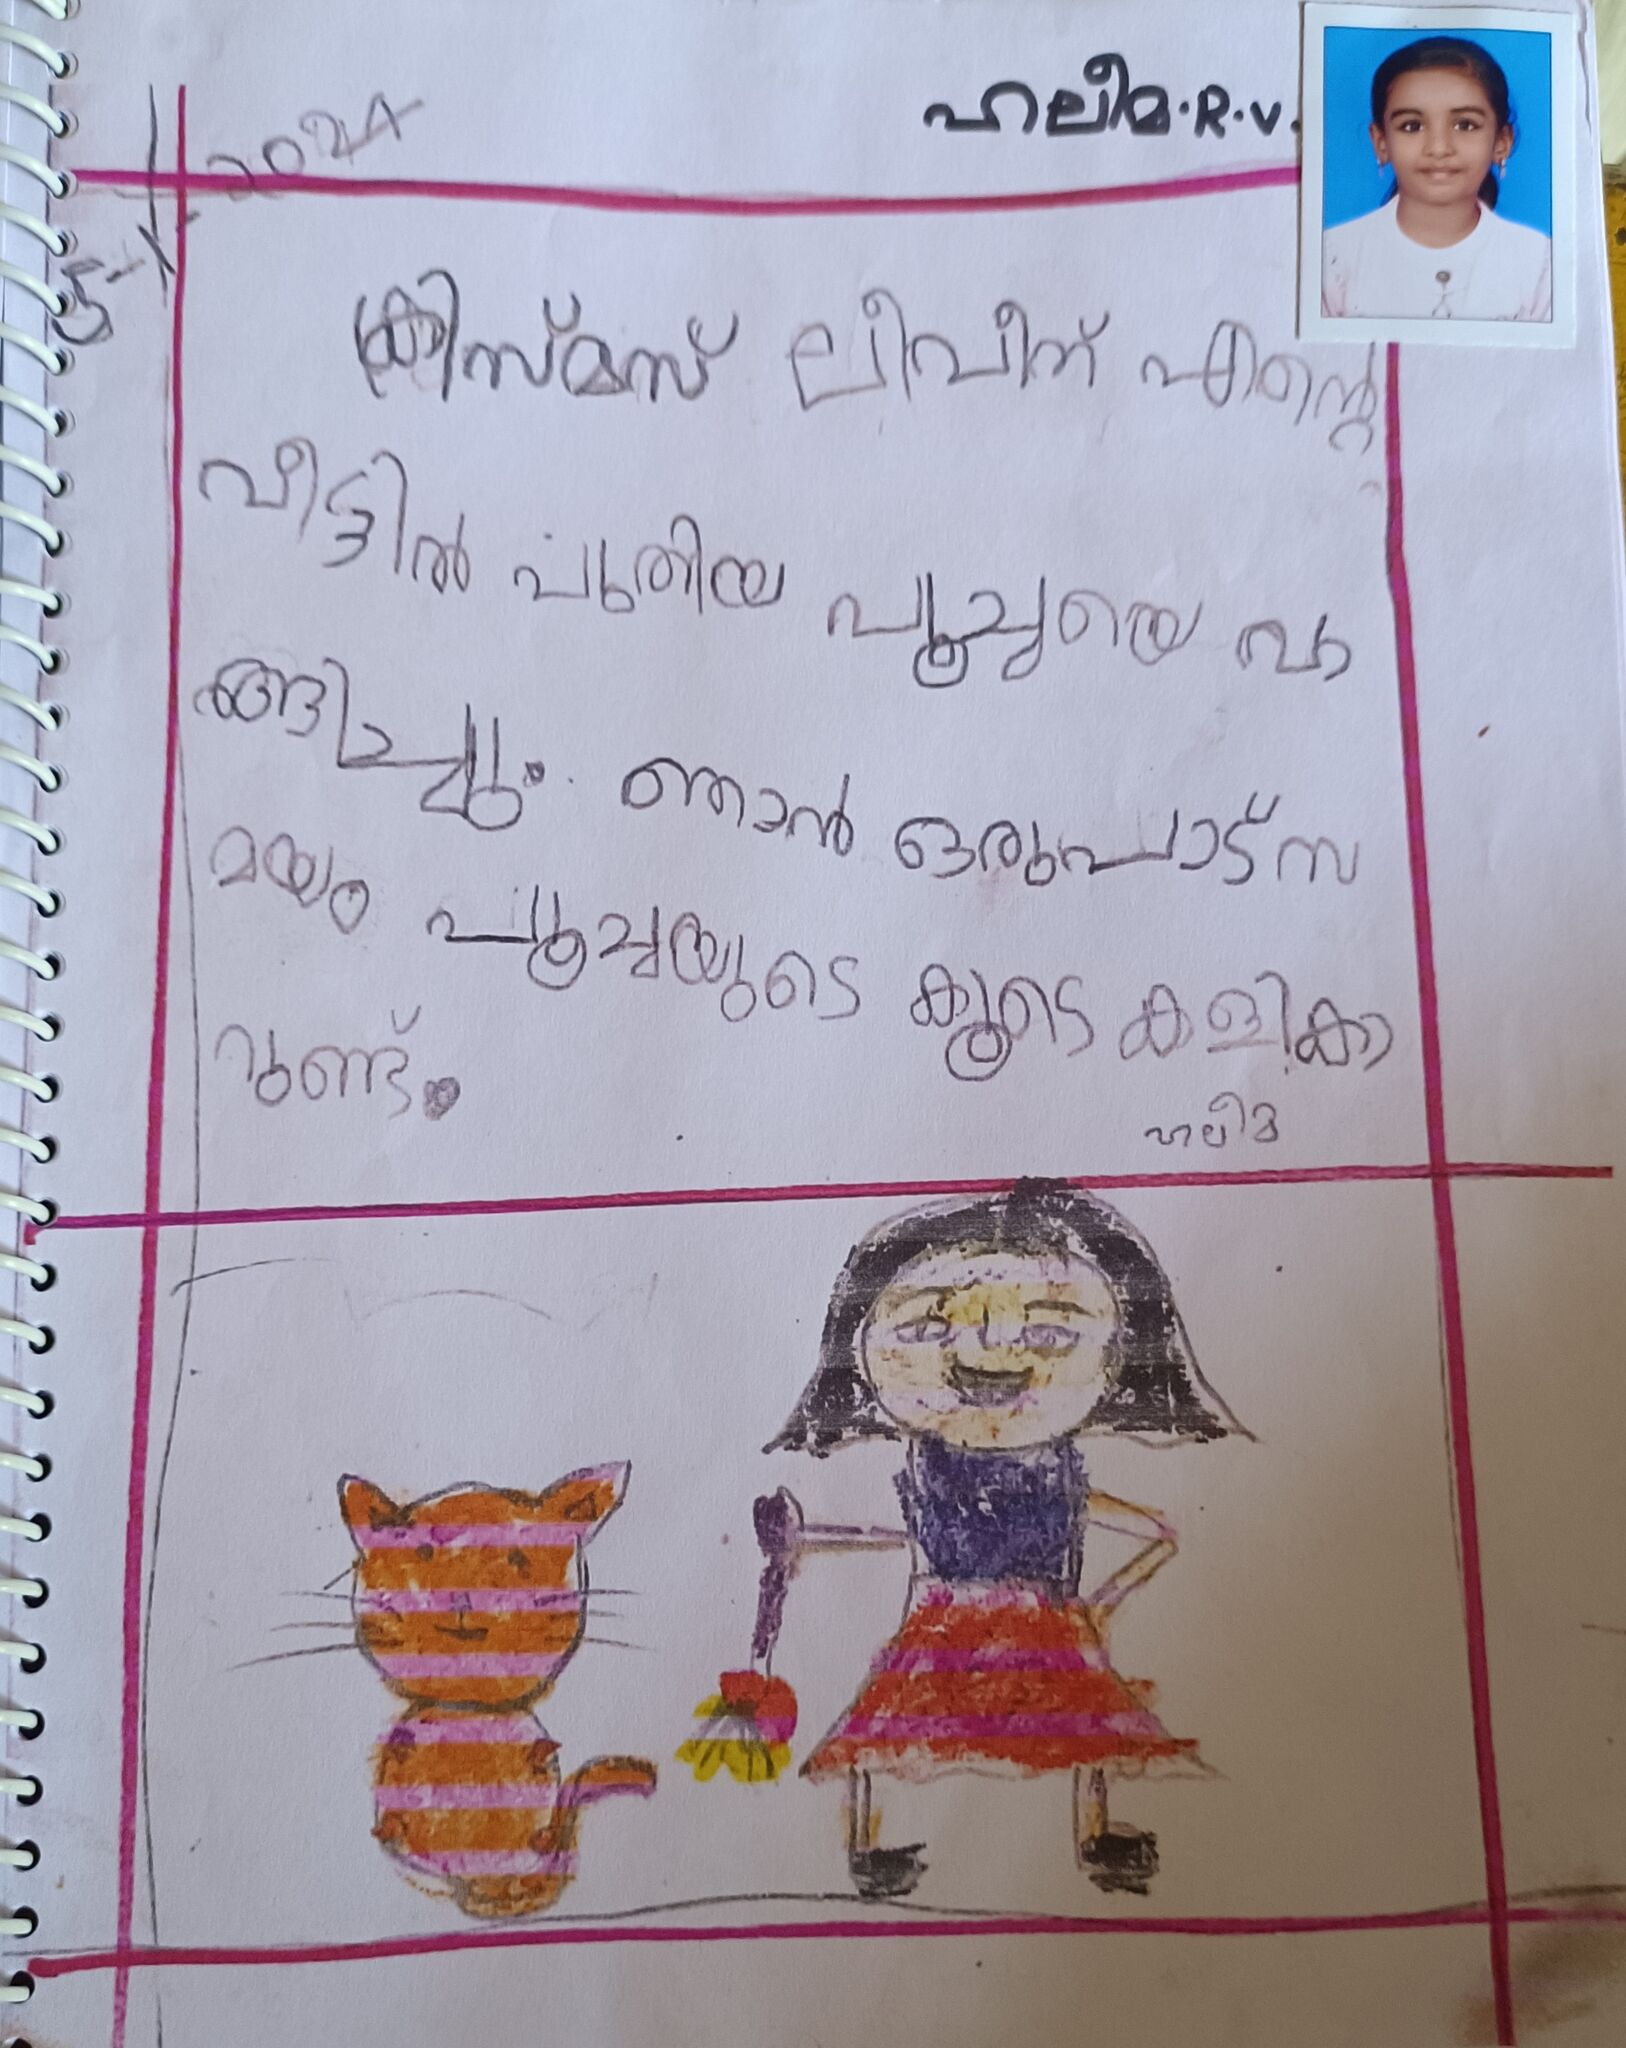 ഹലീമ.R.V.
5-1-2024
ക്രിസ്മസ് ലീവീന് എന്റെ
വീട്ടിൽ പുതിയ പൂച്ചയെ വാ
ങ്ങിച്ചു. ഞാൻ ഒരുപാട് സ
മയം പൂച്ചയുടെ കൂടെ കളികാ
റുണ്ട്.
ഹലീമ